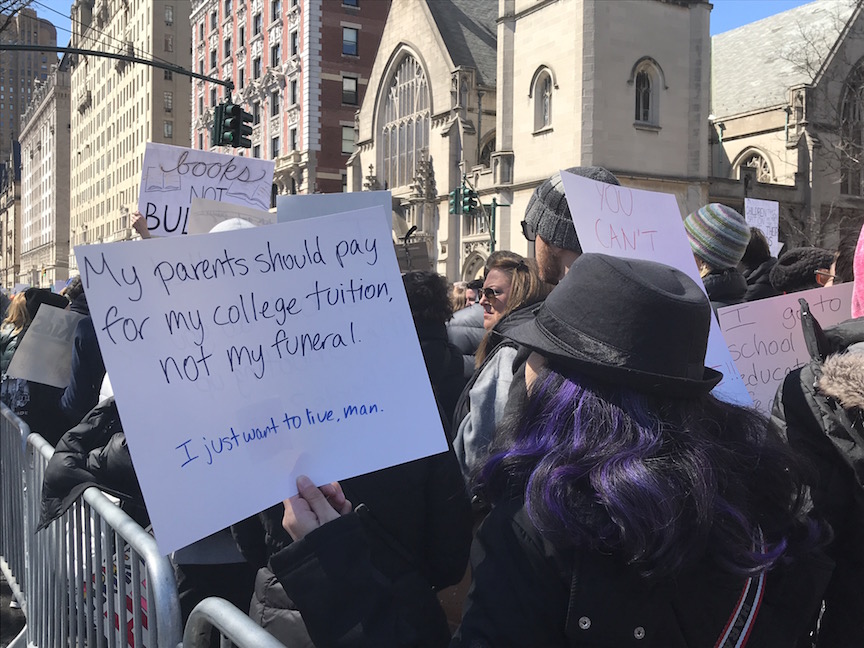 books
NOT
BUL
My parents should pay
for my college tuition,
not my funeral.
I just want to live, man.
YOU
CAN'T
I go to
school
educa